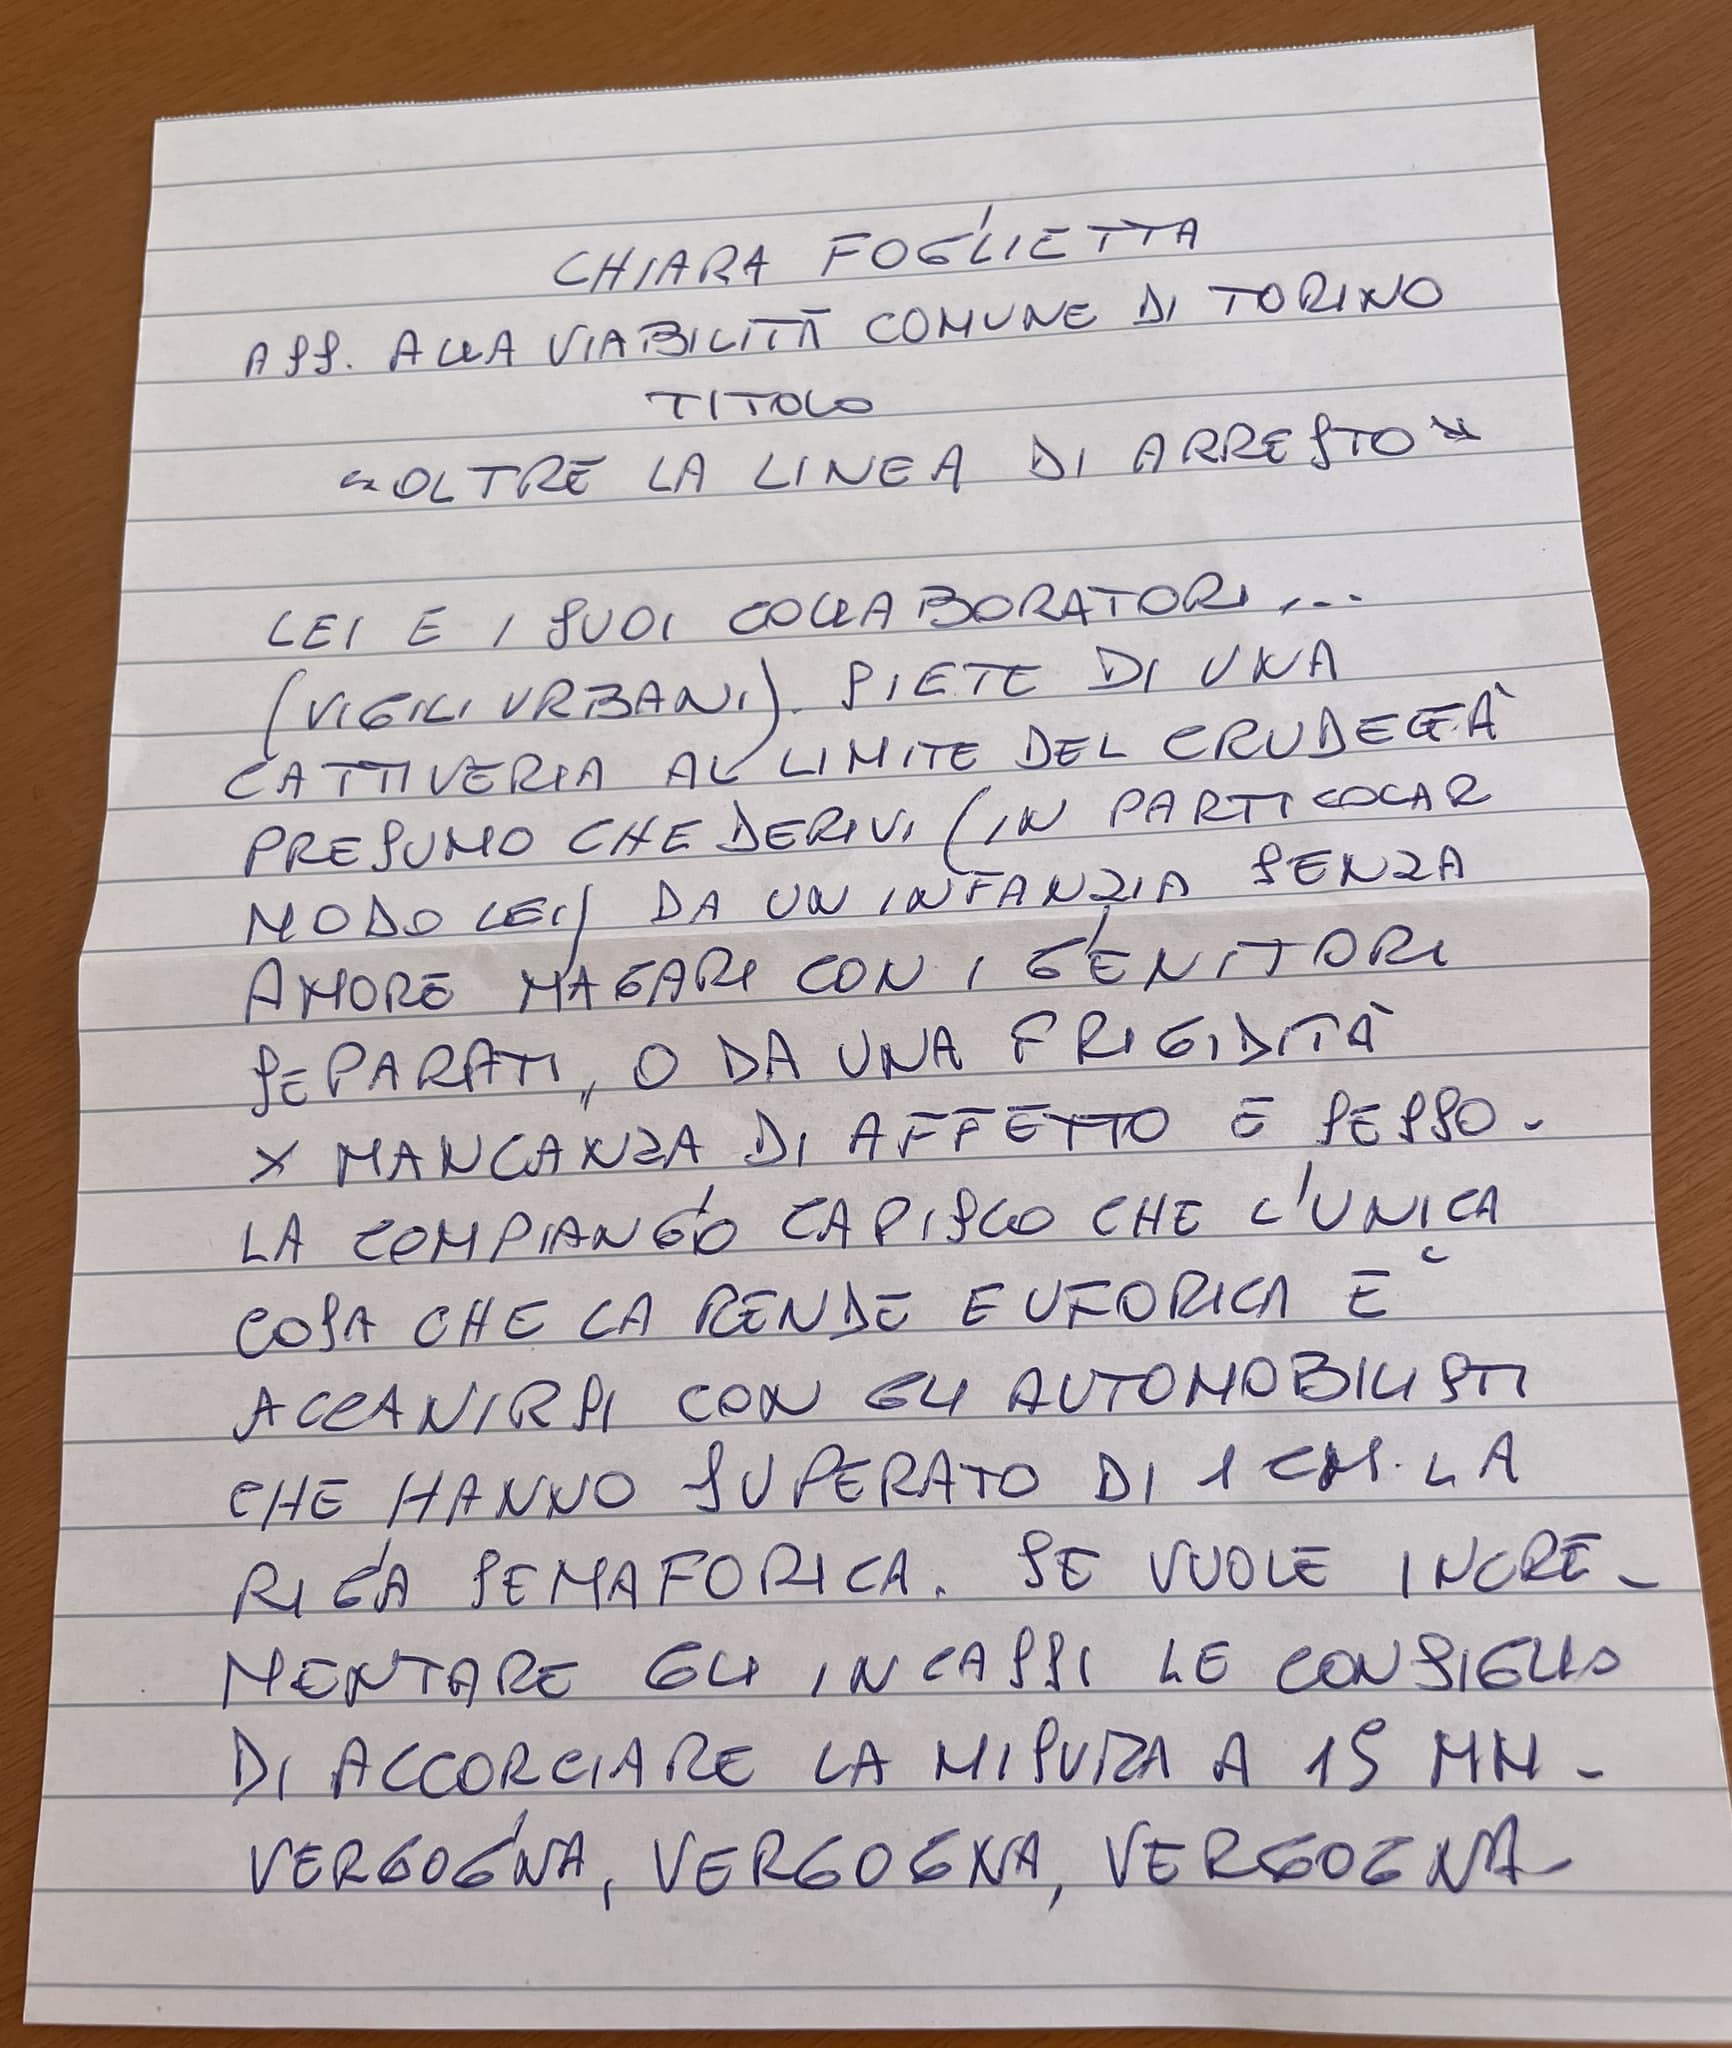 CHIARA FOGLIETTA
ASS. ALLA VIABILITÀ COMUNE DI TORINO
TITOLO
"OLTRE LA LINEA DI ARRESTO"
LEI E I SUOI COLLABORATORI,...
(VIGILI URBANI). SIETE DI UNA
CATTIVERIA AL LIMITE DEL CRUDEGTÀ
PRESUMO CHE DERIVI (IN PARTICOLAR
MODO LEI) DA UN INFANZIA SENZA
AMORE MAGARI CON I GENITORI
SEPARATI, O DA UNA FRIGIDITÀ
X MANCANZA DI AFFETTO E SESSO.
LA COMPIANGO CAPISCO CHE L'UNICA
COSA CHE LA RENDE EUFORICA È
ACCANIRSI CON GLI AUTOMOBILISTI
CHE HANNO SUPERATO DI 1 CM. LA
RIGA SEMAFORICA. SE VUOLE INCRE-
MENTARE GLI INCASSI LE CONSIGLIO
DI ACCORCIARE LA MISURA A 15 MM-
VERGOGNA, VERGOGNA, VERGOGNA